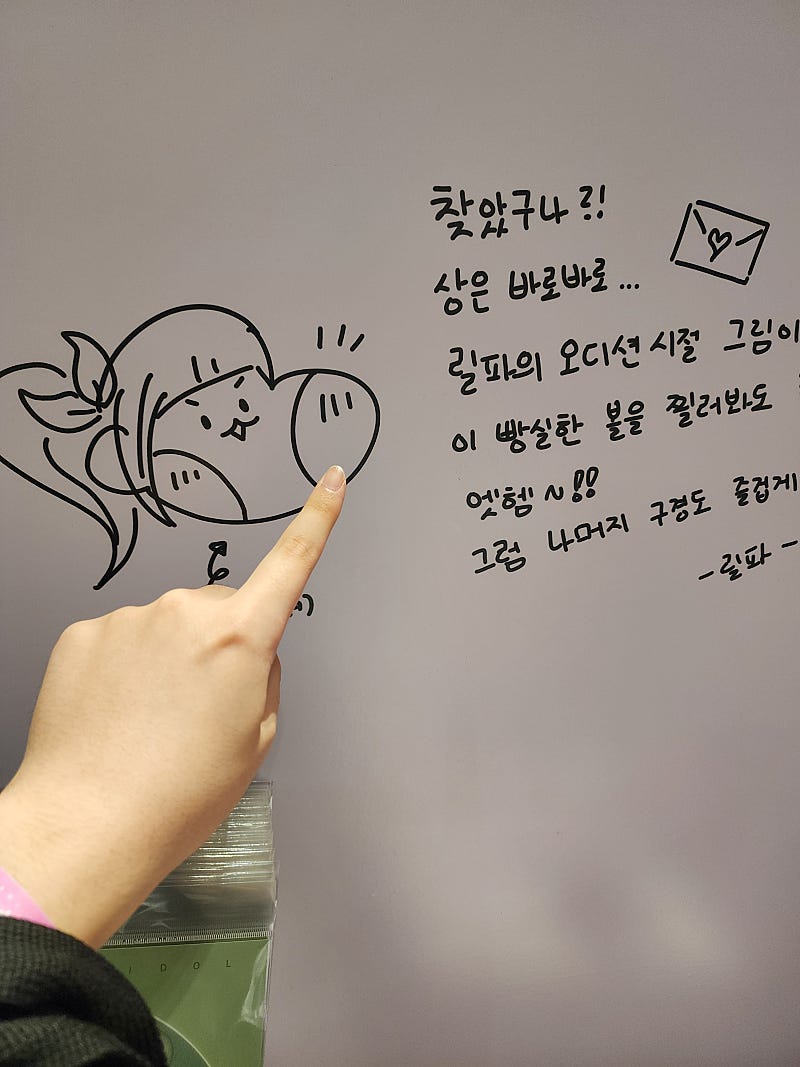 찾았구나!!
상은 바로바로...
릴파의 오디션시절 그림이
이 빵실한 볼을 찔러봐도
엣헴~!!
그럼 나머지 구경도 즐겁게
-릴파-
IDOL